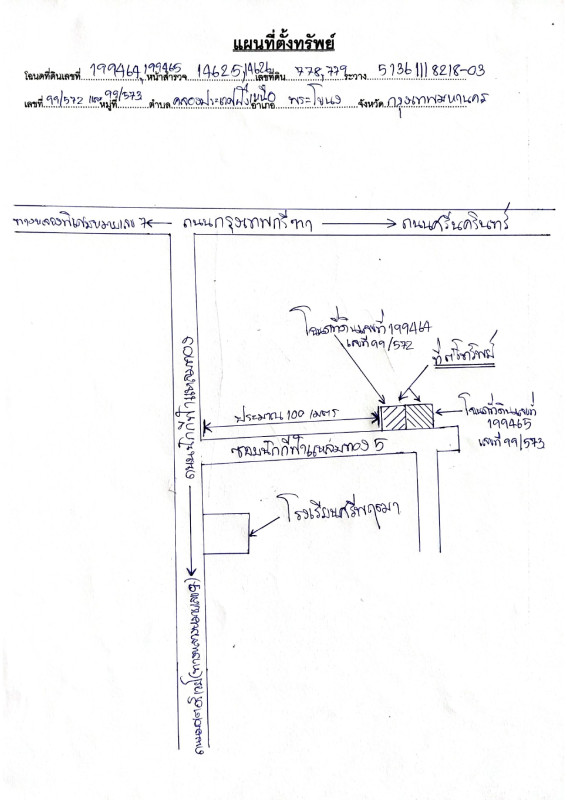 แผนที่ตั้งทรัพย์
โฉนดที่ดินเลขที่ 199464, 199465 หน้าสำรวจ 14625, 14626 เลขที่ดิน 778, 779 ระวาง 5136 III 8218-03
เลขที่ 99/572 และ 99/573 หมู่ที่ - ตำบล คลองประเวศฝั่งเหนือ อำเภอ พระโขนง จังหวัด กรุงเทพมหานคร
7 ถนนกรุงเทพกรีฑา ถนนศรีนครินทร์
โฉนดที่ดินเลขที่ 199464
เลขที่ 99/572
ที่ตั้งทรัพย์
โฉนดที่ดินเลขที่
199465
เลขที่ 99/573
ประมาณ 100 เมตร
ซอยนักกีฬาแหลมทอง 5
ถนนนักกีฬาแหลมทอง
โรงเรียนศรีพฤฒา